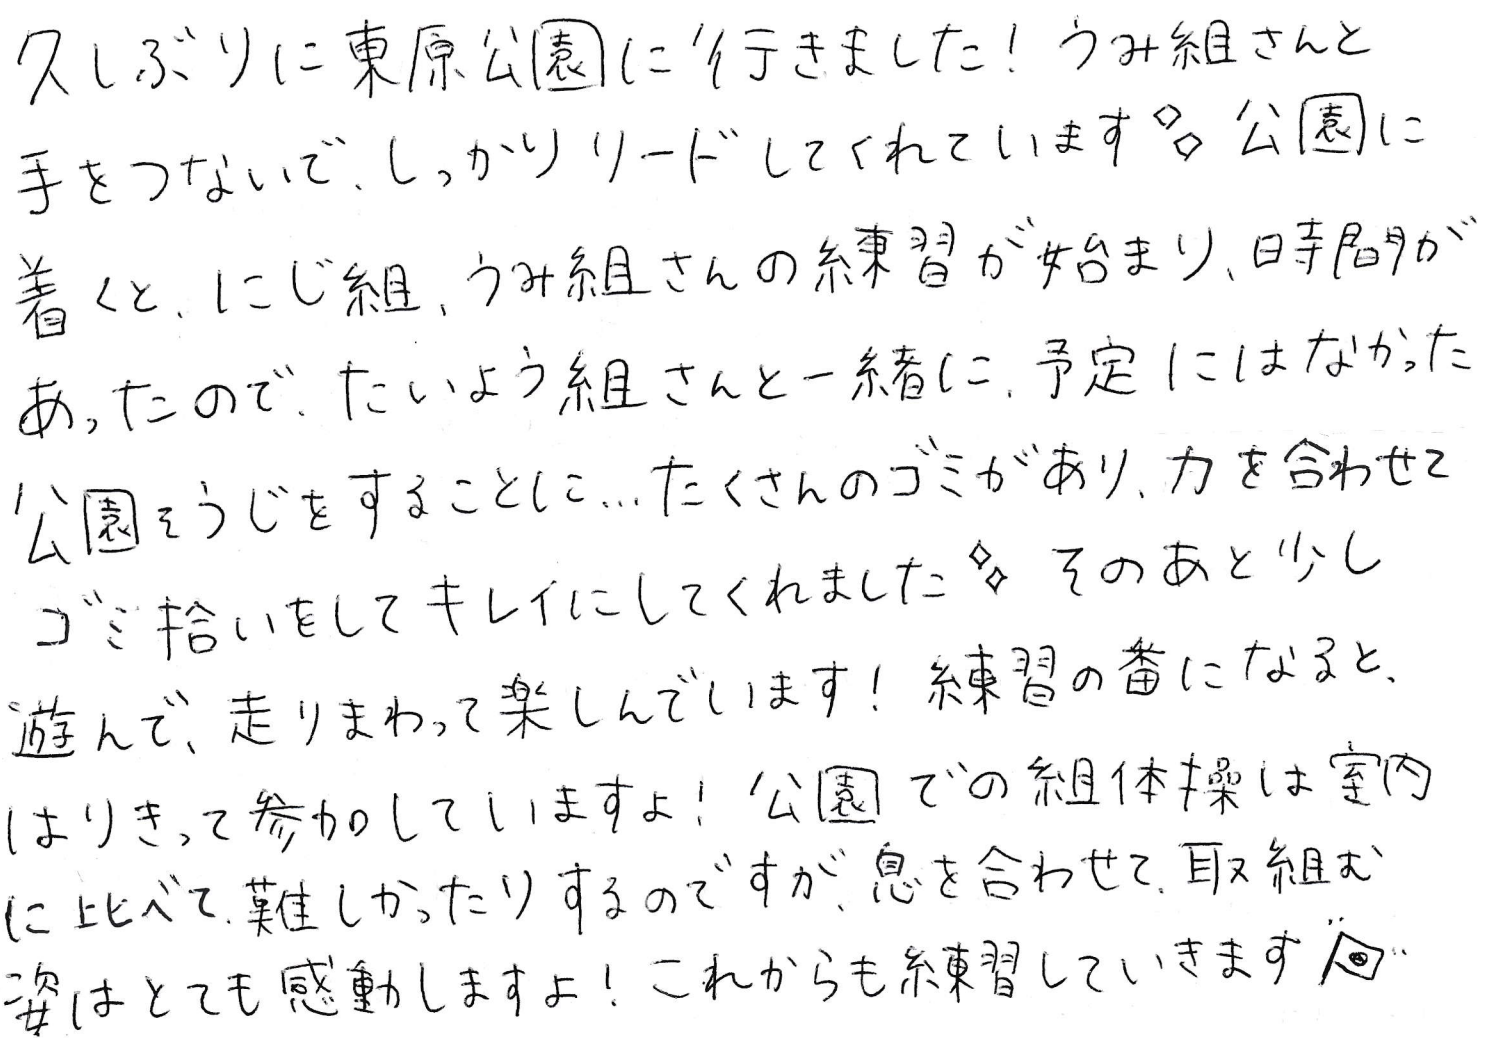 久しぶりに東原公園に行きました！うみ組さんと
手をつないで、しっかりリードしてくれています 公園に
着くと、にじ組、うみ組さんの練習が始まり、時間が
あったので、たいよう組さんと一緒に、予定にはなかった
公園そうじをすることに…たくさんのゴミがあり、力を合わせて
ゴミ拾いをしてキレイにしてくれました そのあと少し
遊んで、走りまわって楽しんでいます！練習の番になると、
はりきって参加していますよ！公園での組体操は室内
に比べて、難しかったりするのですが、息を合わせて、取組む
姿はとても感動しますよ！これからも練習していきます